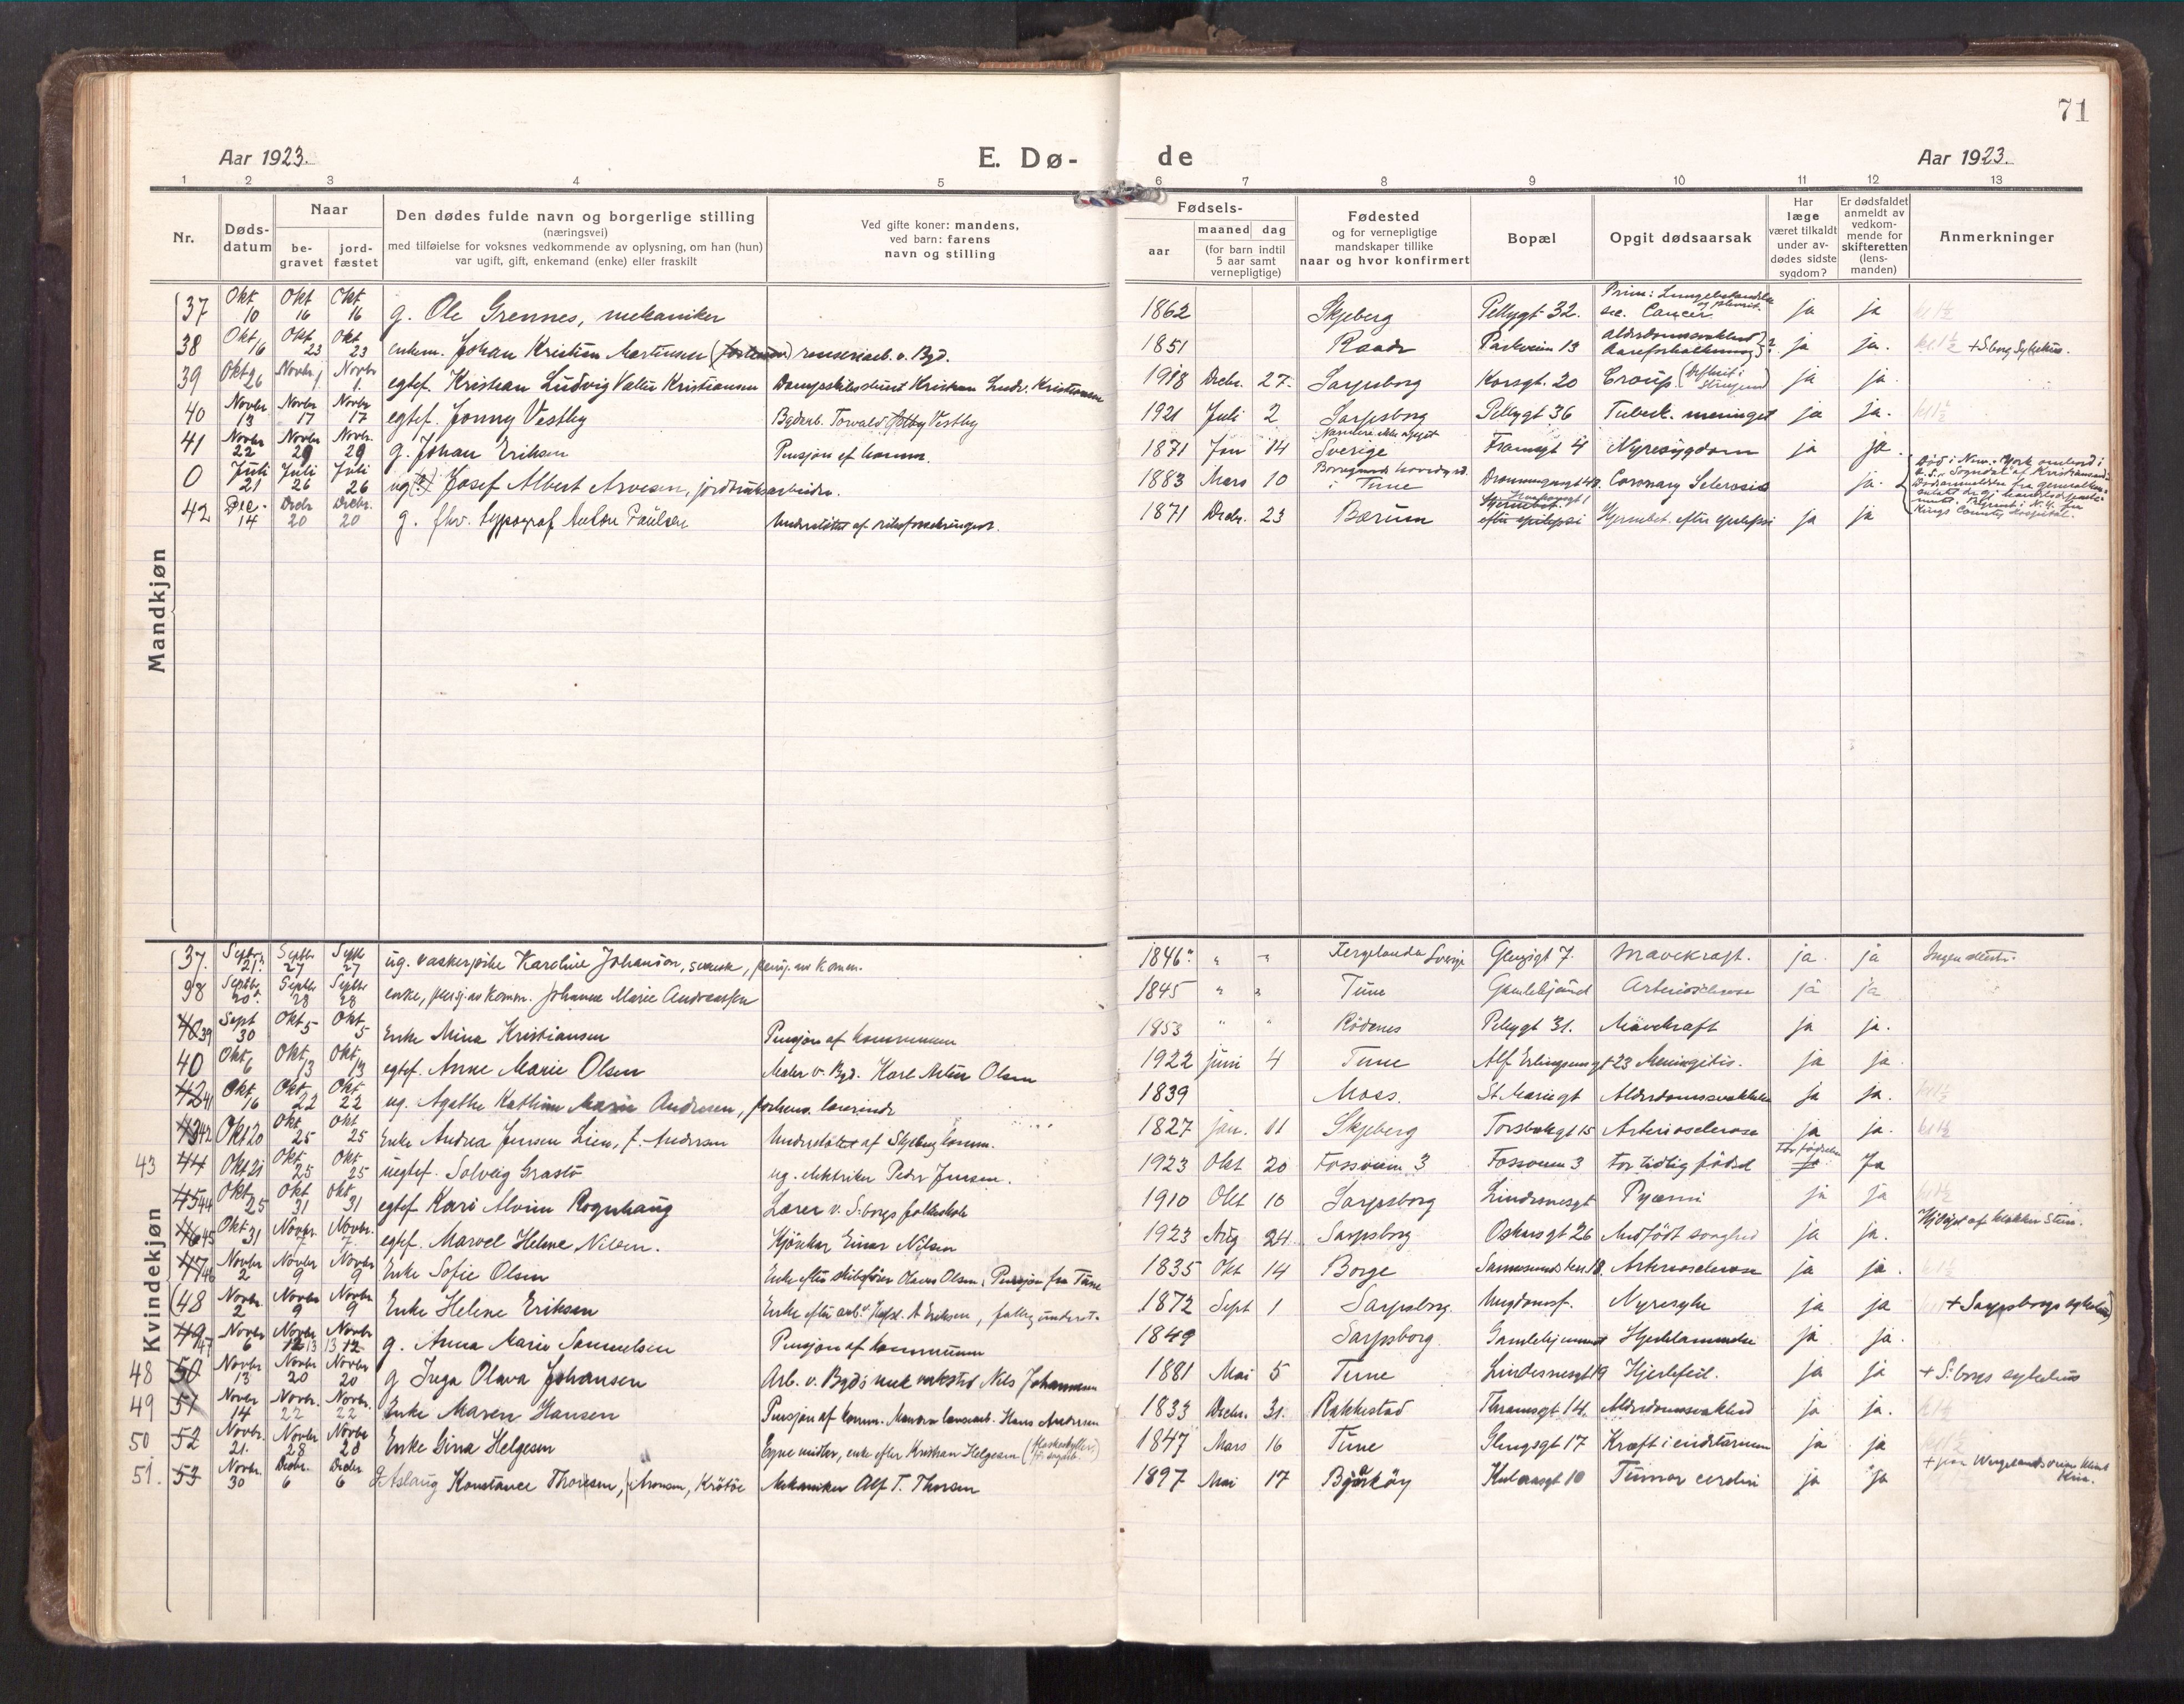 71
Aar 1923.
E. Dø-
de
Aar 1923.
1 2 3 4 5 6 7 8 9 10 11 12 13
Nr.
Døds-
datum
Naar
be-
gravet
jord-
fæstet
Den dødes fulde navn og borgerlige stilling
(næringsvei)
med tilføielse for voksnes vedkommende av oplysning, om han (hun)
var ugift, gift, enkemand (enke) eller fraskilt
Ved gifte koner: mandens,
ved barn: farens
navn og stilling
Fødsels-
aar
maaned dag
(for barn indtil
5 aar samt
vernepligtige)
Fødested
og for vernepligtige
mandskaper tillike
naar og hvor konfirmert
Bopæl
Opgit dødsaarsak
Har
læge
været tilkaldt
under av-
dødes sidste
sygdom?
Er dødsfaldet
anmeldt av
vedkom-
mende for
skifteretten
(lens-
manden)
Anmerkninger
Mandkjøn
37 Okt 10 Okt 16 Okt 16 g. Ole Grennes, mekaniker 1862 Skjeberg Pellygt 32. sec. Cancer ja ja
38 Okt 16 Okt 23 Okt 23 enkem. Johan Kristian Martinsen renseriarb. v. Bgd. 1851 Raade Parkveien 13 alderdomssvakhed ja ja. + S:borg Sykehus.
39 Okt 26 Novbr. 1 Novbr 1. egtef. Kristian Ludvig Valter Kristiansen 1918 Decbr. 27. Sarpsborg Korsgt. 20 Croup. ja ja
40 Novbr 13 Novbr 17 Novbr 17 egtef. Jonny Vestby Bgdarb. Torvald Vestby 1921 Juli 2 Sarpsborg Pellygt 36 Tuberk. meninget ja ja.
41 Novbr 22 Novbr 29 Novbr. 29 g. Johan Eriksen Pensjon af komm. 1871 Jan 14 Sverige Framsgt 4 Nyresygdom ja ja
0 Juli 21 Juli 26 Juli 26 ug (?) Josef Albert Arvesen, jordbruksarbeider. 1883 Mars 10 i Tune Coronary Sclerosis ja.
Død i New-York
Kings County Hospital.
42 Dec. 14 Decbr 20 Decbr. 20 g. fhv. typograf Anton Paulsen 1871 Decbr. 23 Bærum Hjernebet. efter epilepsi ja ja
Kvindekjøn
37. Septbr 21. Septbr 27 Septbr 27 ug. vaskerpike Karoline Johanson, svensk, pensj. av komm. 1846 " " Fergelanda Sverige Glengsgt 7. Mavekræft. ja. ja Ingen
98 Septbr 20. Septbr 28 Septbr 28 enke, pensj. av komm. Johanne Marie Andreassen 1845 " " Tune Gamlehjemmet Arteriosclerose ja ja
40 39 Sept 30 Okt 5 Okt 5 Enke Mina Kristiansen Pensjon af kommunen 1853 " " Rödenes Pellygt 31. Mavekræft ja ja.
40 Okt 6 Okt 13 Okt 13 egtef. Anne Marie Olsen Maler v. Bgd. Karl Artur Olsen 1922 Juni 4 Tune Alf Erlingsensgt 23 Meningitis. ja ja
42 41 Okt 16 Okt 22 Okt 22 ug. Agathe Kathrine Marie Andresen, forhenv. lærerinde 1839 Moss. St. Mariegt Alderdomssvakhed ja ja.
43 42 Okt 20 Okt 25 Okt 25 Enke Andrea Jensen Lien, f. Andersen Understöttet af Skjeberg komm. 1827 jan. 11 Skjeberg Torsbækgt 15 Arteriosclerose ja ja.
43 44 Okt 21 Okt 25 Okt 25 uegtef. Solveig Grastö ug. elektriker Peder Jensen. 1923 Okt 20 Fossveien 3 Fossveien 3 For tidlig födsel Før födselen ja Ja
45 44 Okt 25 Okt 31 Okt. 31 egtef Kari Alvim Rognhaug Lærer v. S:borgs folkeskole 1910 Okt 10 Sarpsborg Lindesnesgt Pyæmi ja ja
46 45 Okt 31 Novbr. 7 Novbr. 7 egtef. Marvel Helene Nilsen. Einar Nilsen 1923 Aug 24 Sarpsborg Oskarsgt 26 Medfödt svaghed ja ja. Hjdöpt af klokker Sten.
47 46 Novbr 2 Novbr 9 Novbr 9 Enke Sofie Olsen Enke efter skibsfører Olaves Olsen, Pensjon fra Tune 1835 Okt 14 Borge Sannesundsveien 18. Arteriosclerose ja ja.
48 Novbr. 2 Novbr 9 Novbr 9 Enke Helene Eriksen Enke efter arb. v. Hafsl. A Eriksen, fattigunderst. 1872 Sept 1 Sarpsborg. Ungdomsf. Nyresyke ja ja + Sarpsborgs sykehus
49 47 Novbr 6 Novbr 12 13 Novbr 13 12 g. Anna Marie Samuelsen Pensjon af kommunen 1849 Sarpsborg. Gamlehjemmet Hjertelammelse ja ja.
48 50 Novbr 13 Novbr 20 Novbr 20 g Inga Olava Johansen Arb. v. Bgds mek verksted Nils Johannesen 1881 Mai 5 Tune Lindesnesgt 19 Hjertefeil. ja ja + S:borgs sykehus
49 51 Novbr 14 Novbr. 22 Novbr. 22 Enke Maren Hansen Pensjon af komm. Hans Andersen 1833 Decbr. 31. Rakkestad Thranesgt 14. Alderdomssvakhed ja ja.
50 52 Novbr. 21. Novbr 28 Novbr 28 Enke Gina Helgesen Egne midler, enke efter Kristian Helgesen 1847 Mars 16 Tune Glengsgt 17 Kræft i endetarmen ja ja
51. 53 Novbr. 30 Decbr. 6 Decbr 6 g Aslaug Konstance Thoresen, f. Aronsen, Krötöe Mekaniker Alf T. Thoresen 1897 Mai 17 Bjarköy Kulaasgt 10 Tumor cerebri ja ja